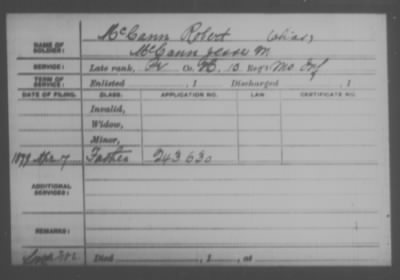 McCann Robert alias,
NAME OF SOLDIER: McCann Jesse M.
SERVICE: Late rank, Co. 10 Reg't Mo Inf
TERM OF SERVICE: Enlisted , 1 Discharged , 1
DATE OF FILING. CLASS. APPLICATION NO. LAW. CERTIFICATE NO.
Invalid,
Widow,
Minor,
Father 243630
ADDITIONAL SERVICES:
REMARKS:
Died , 1 , at